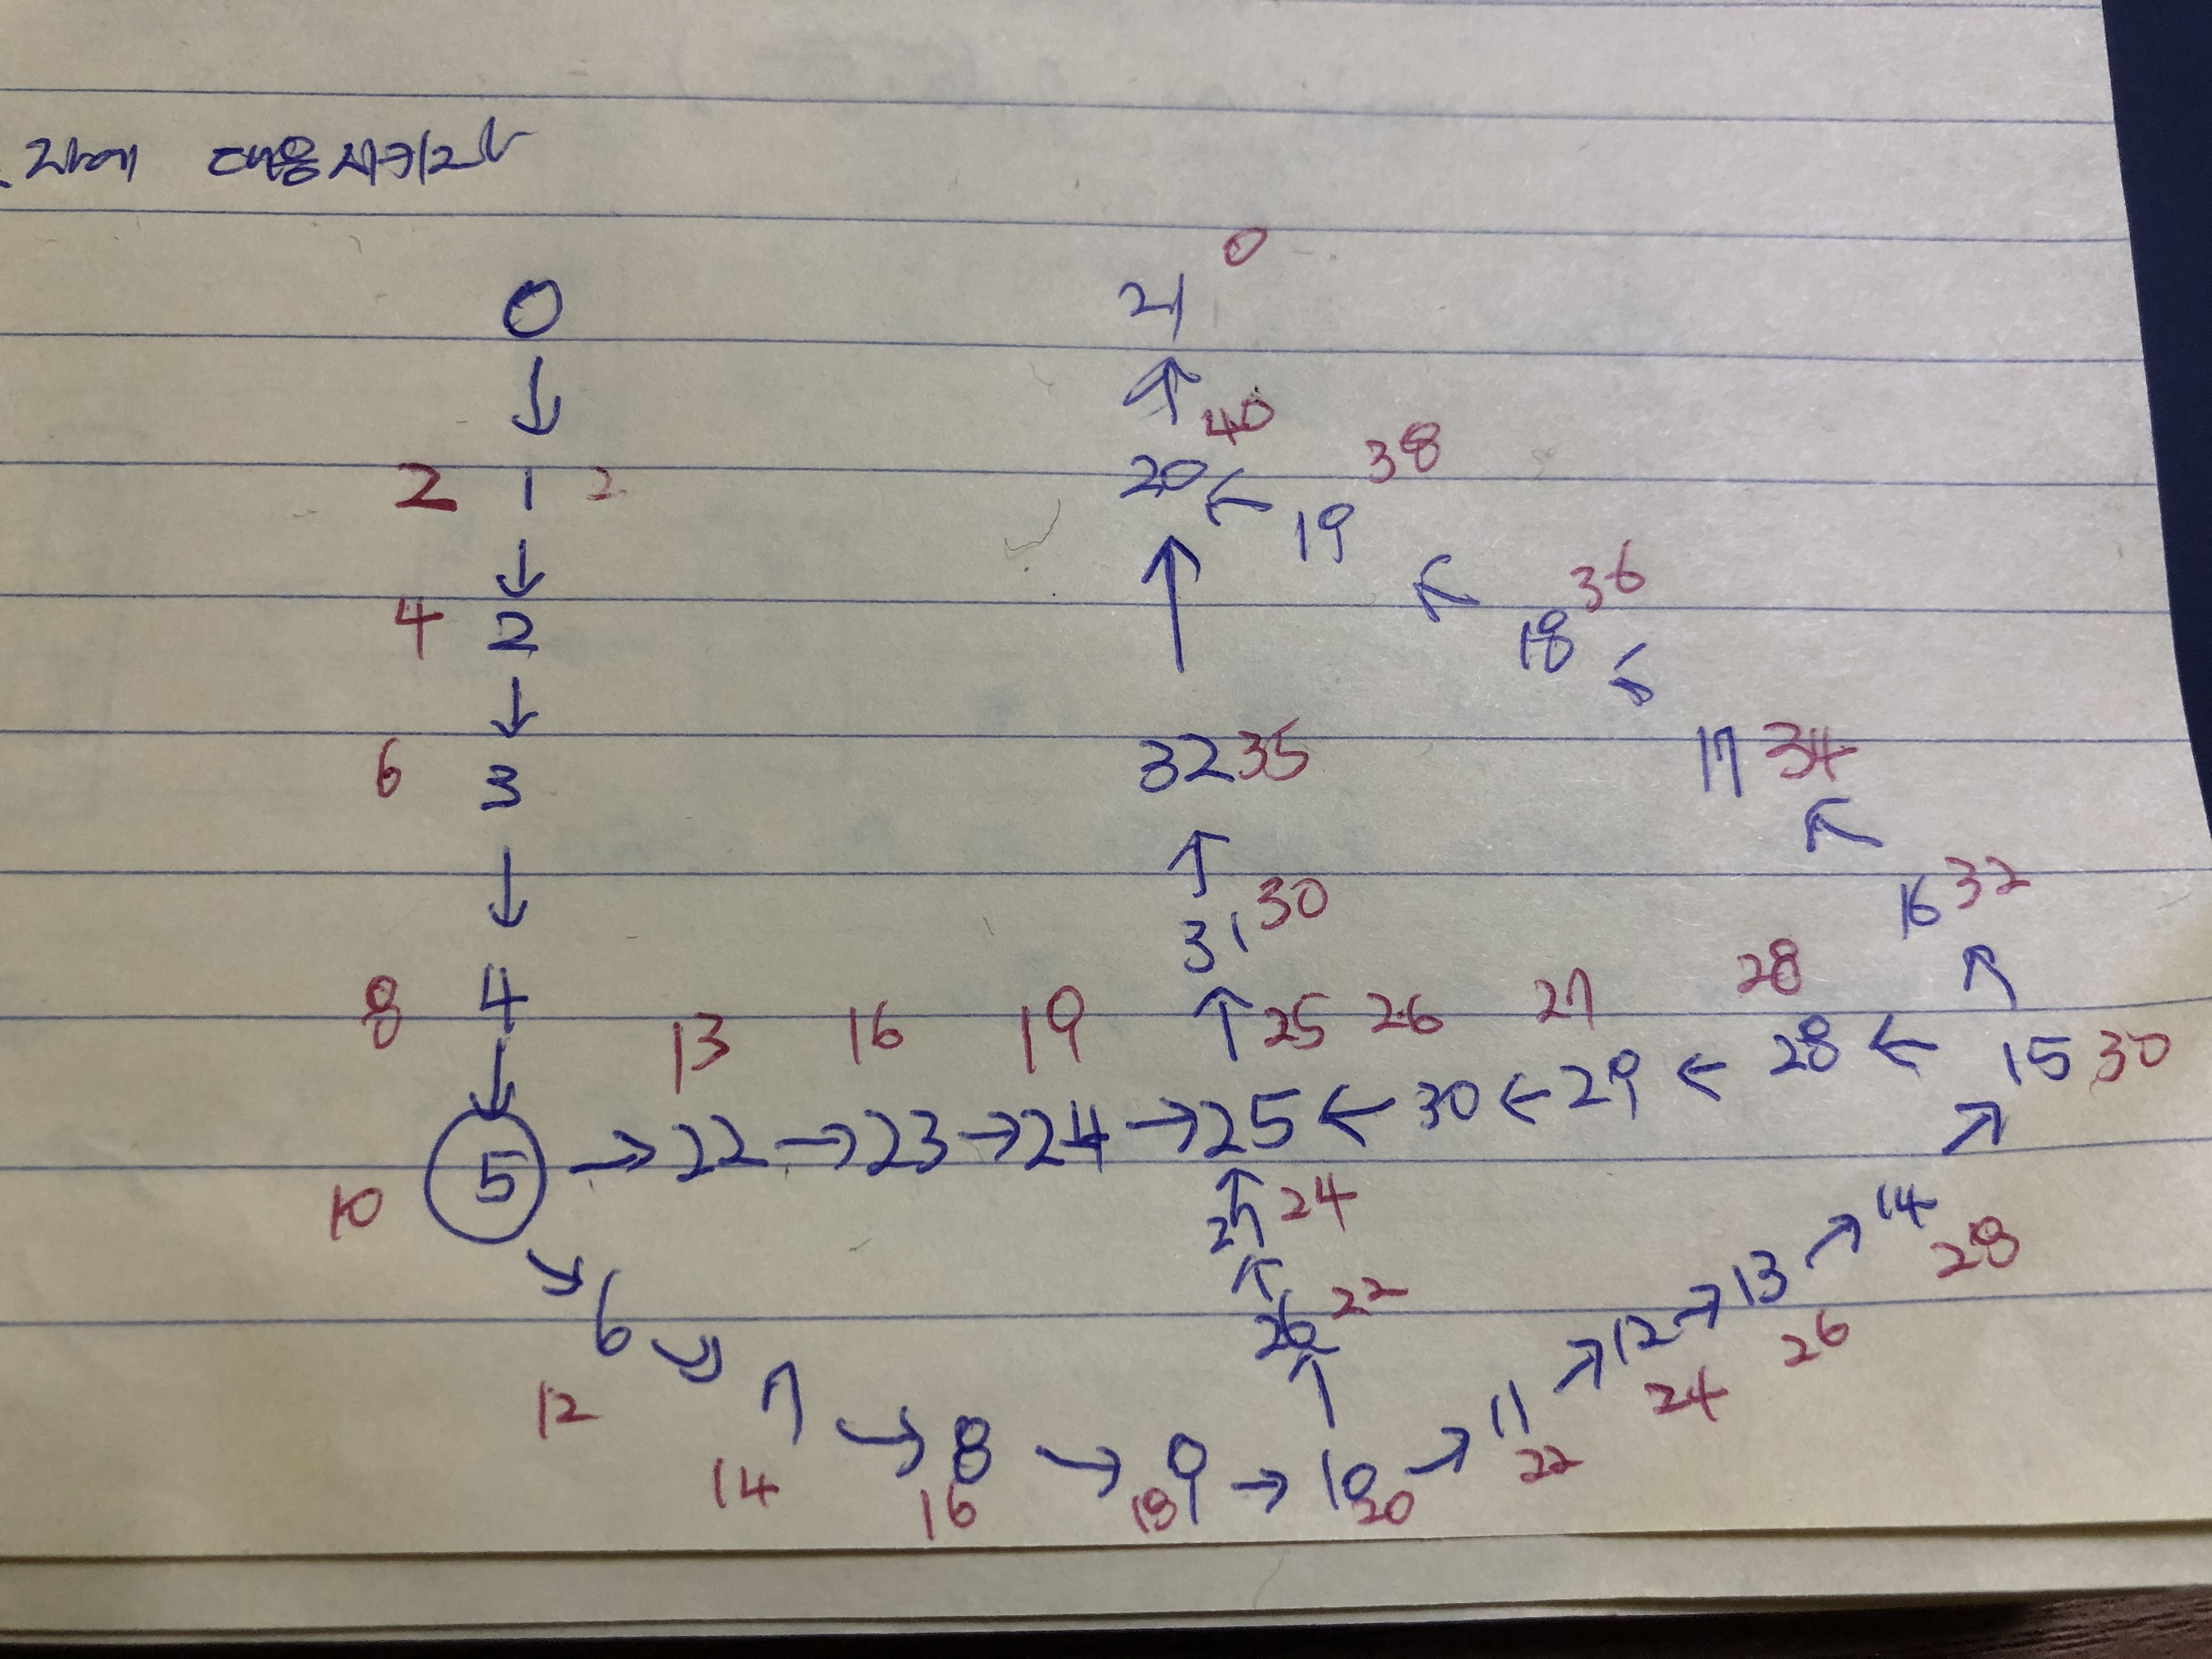 좌에 대응시키라
0
0 21
40
38
2 1 2 20
19
36
4 2 18
6 3 32 35 17 34
31 30 16 32
8 4 13 16 19 25 26 27 28
5 → 22 → 23 → 24 → 25 ← 30 ← 29 ← 28 ← 15 30
10 27 24 14
28
6 26 22 12 → 13
26
12 7 11 24
14 8 9 → 10 22
16 18 20